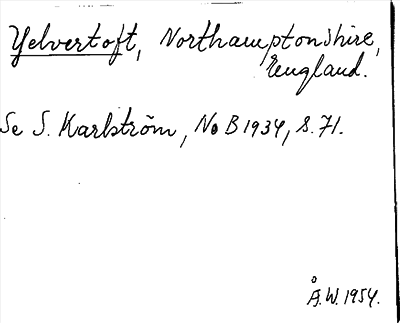 Yelvertoft, Northamptonshire,
England.
Se S. Karlström, NoB 1934, s. 71.
Å.W. 1954.